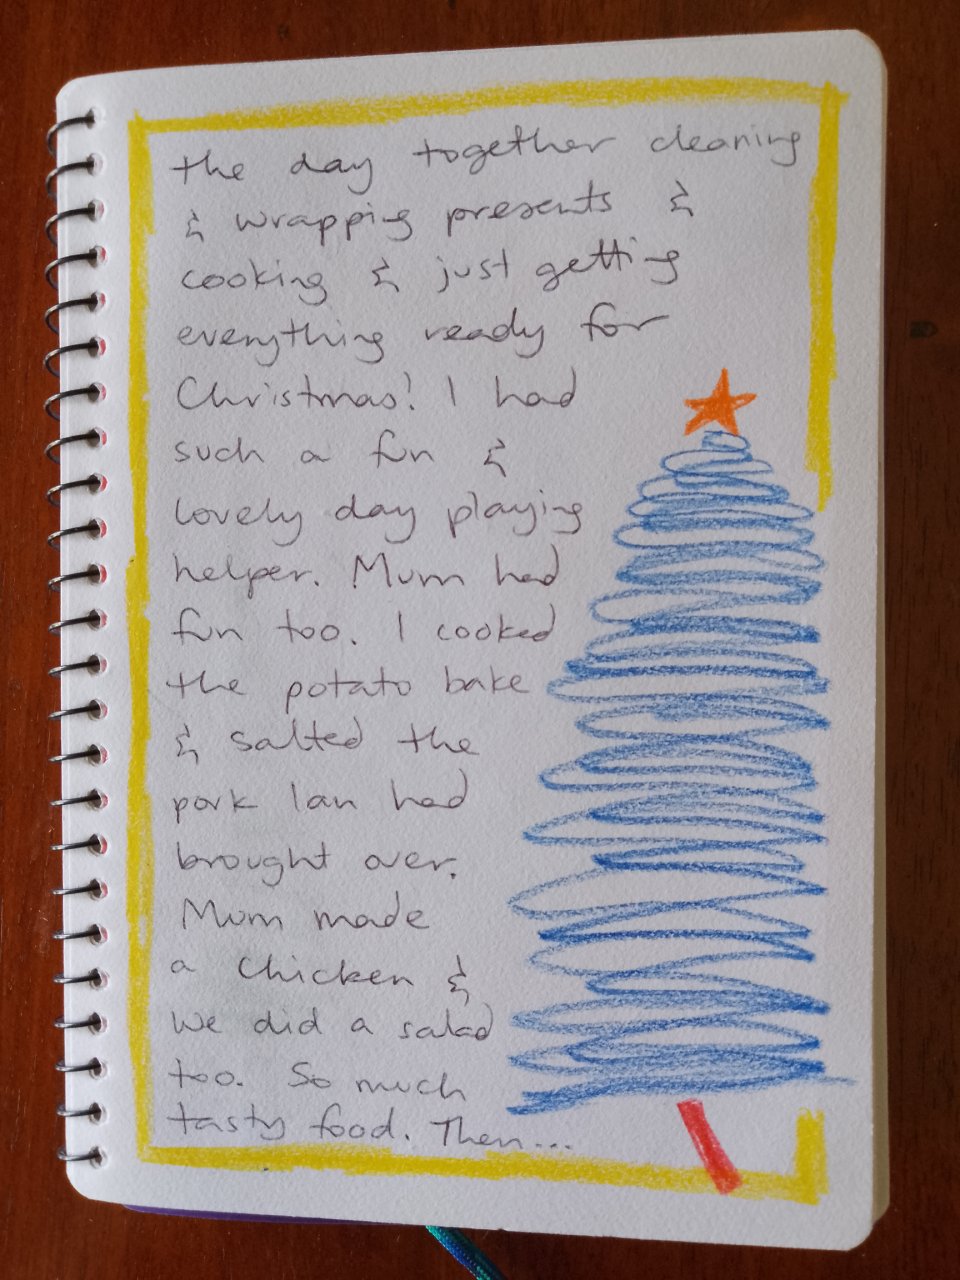 the day together cleaning
& wrapping presents &
cooking & just getting
everything ready for
Christmas! I had
such a fun &
lovely day playing
helper. Mum had
fun too. I cooked
the potato bake
& salted the
pork Ian had
brought over.
Mum made
a chicken &
we did a salad
too. So much
tasty food. Then...